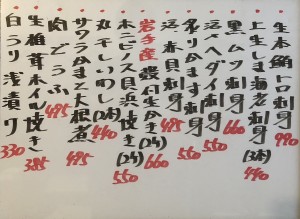 生本鮪トロ刺身 990
上生しま海老(3本) 440
黒ムツ刺身 660
活〆ヘダイ刺身 550
炙りかます刺身 550
活赤貝刺身 495
岩手産殻付生かき(2ケ) 660
ホンビノス貝浜焼き(2ケ) 550
丸干しいわし(2本) 440
サワラかまと大根煮 495
肉どうふ 495
生椎茸ホイル焼き 385
白うり浅漬り 330